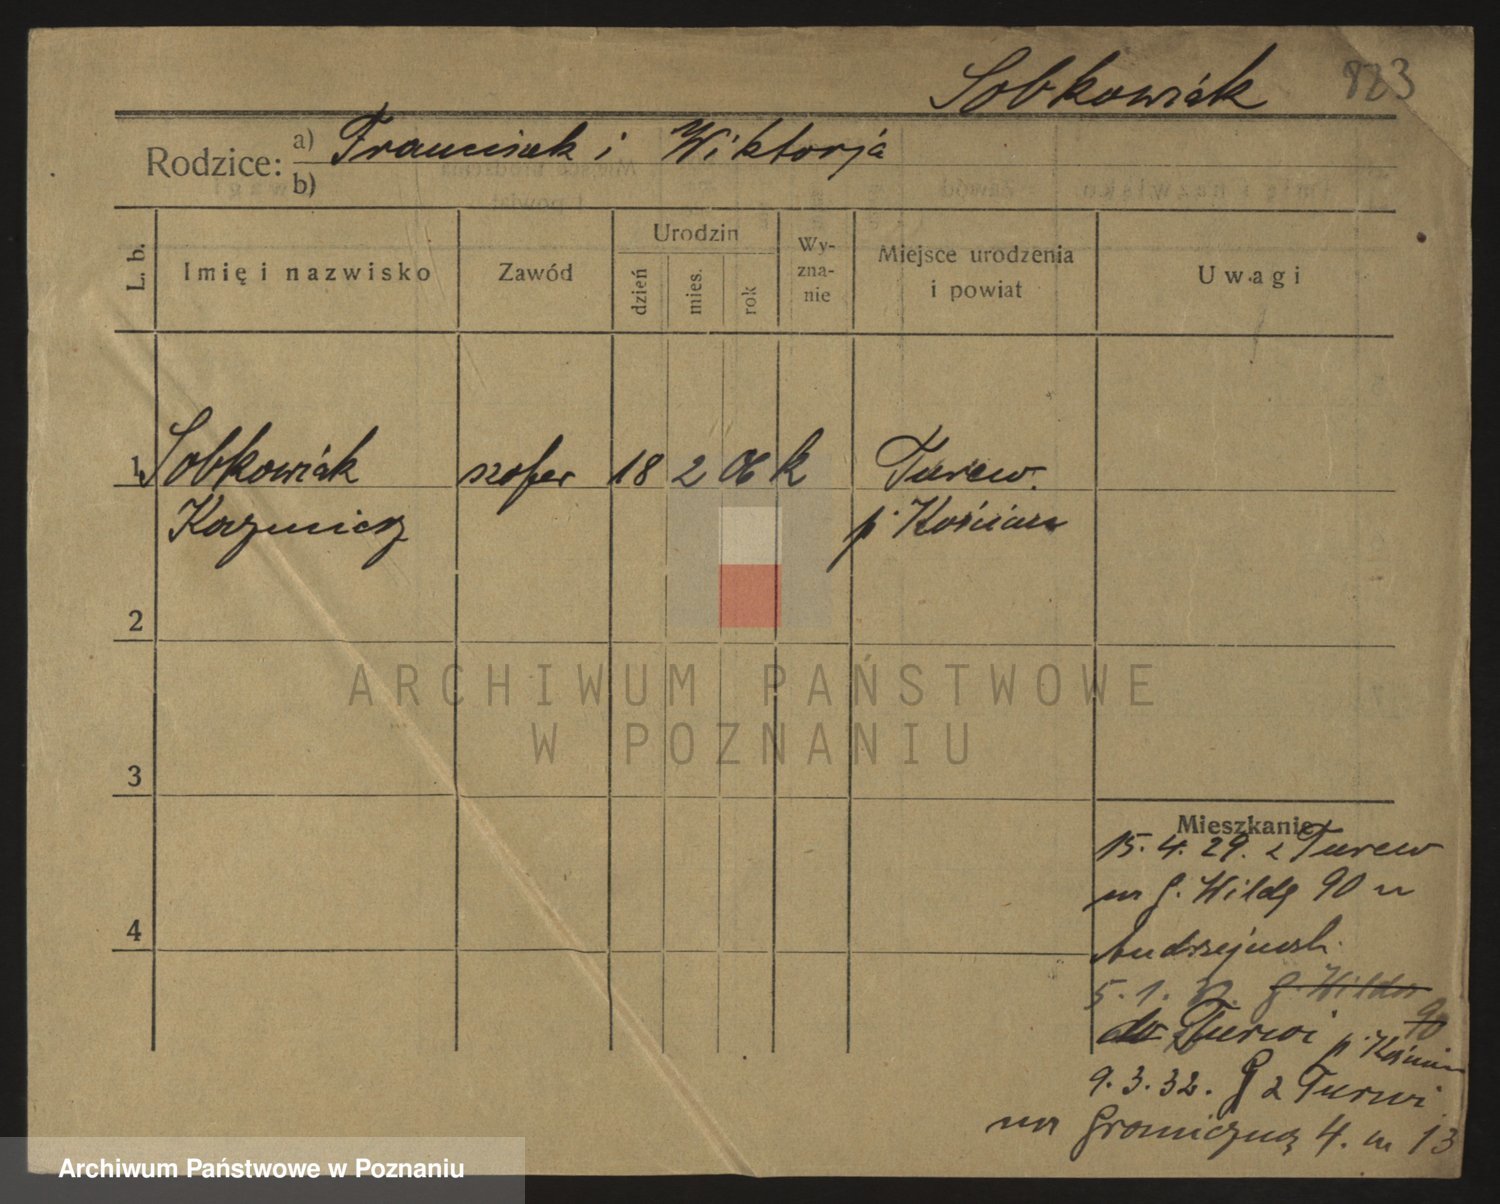 Sobkowiak
823
Rodzice: a) Franciszek i Wiktorja
b)
L. b. Imię i nazwisko Zawód Urodzin dzień mies. rok Wy-zna-nie Miejsce urodzenia i powiat Uwagi
1 Sobkowiak szofer 18 2 06 k Turew.
Kazmierz p. Kościan
2
3
4
ARCHIWUM PAŃSTWOWE
W POZNANIU
Mieszkanie
15. 4. 29. z Turew
na G. Wildę 90 u
5. 1. G. Wilda
90
do Turwi p. Kościan
9. 3. 32. z Turwi
na Graniczną 4. m 13
Archiwum Państwowe w Poznaniu